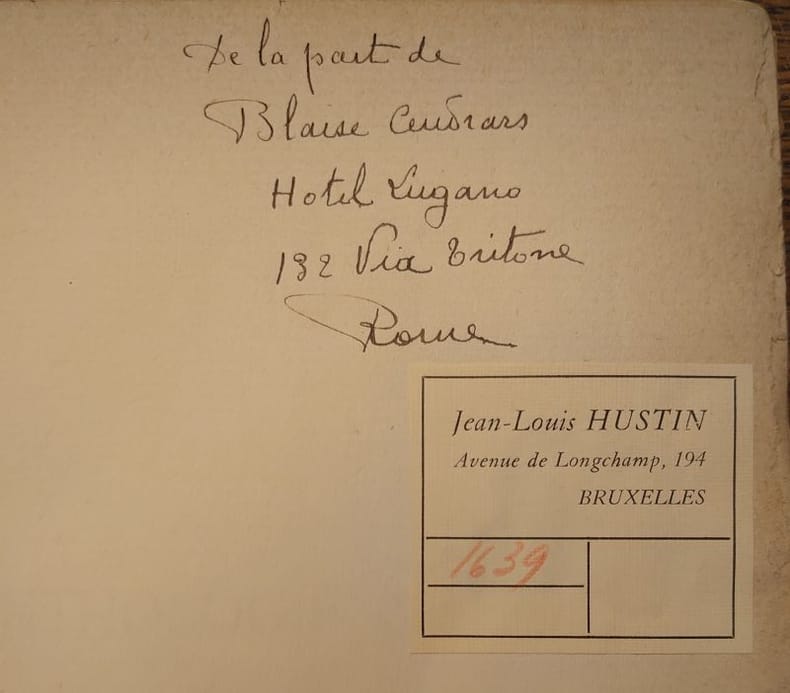 De la part de
Blaise Cendrars
Hotel Lugano
132 Via Tritone
Rome
Jean-Louis HUSTIN
Avenue de Longchamp, 194
BRUXELLES
1639